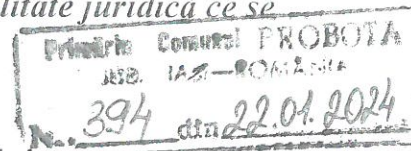 litate juridică ce se
Primăria Comunei PROBOTA
JUD. IAȘI—ROMÂNIA
Nr. 394 din 22.01.2024